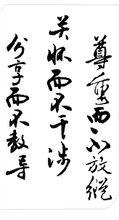 尊重而不放纵
关怀而不干涉
分享而不教导